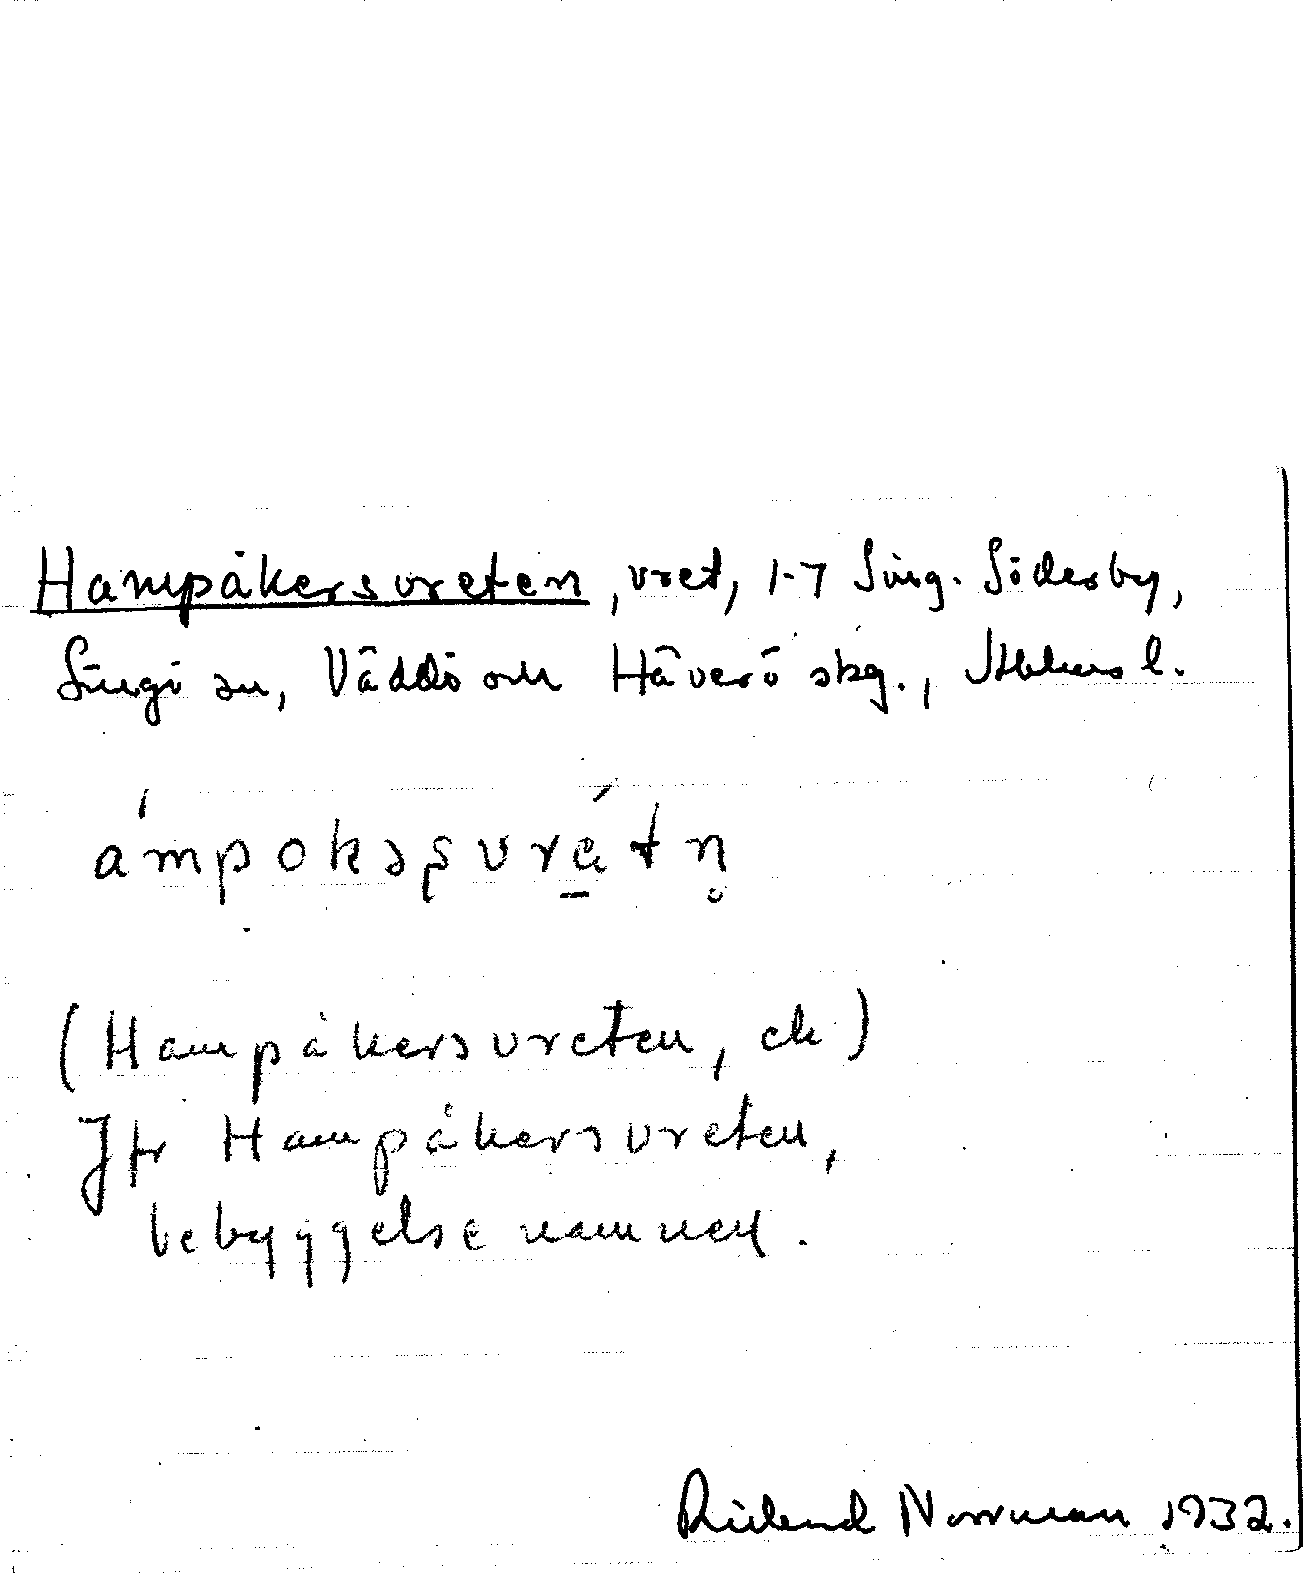 Hampåkersvreten, vret, 1-7 Sing. Söderby,
Singö sn, Väddö och Häverö skg., Sthlms l.
ámpokəʂvrét n̥
(Hampåkersvreten, ek)
Jfr Hampåkersvreten,
bebyggelsenamnen.
Rickard Norrman 1932.